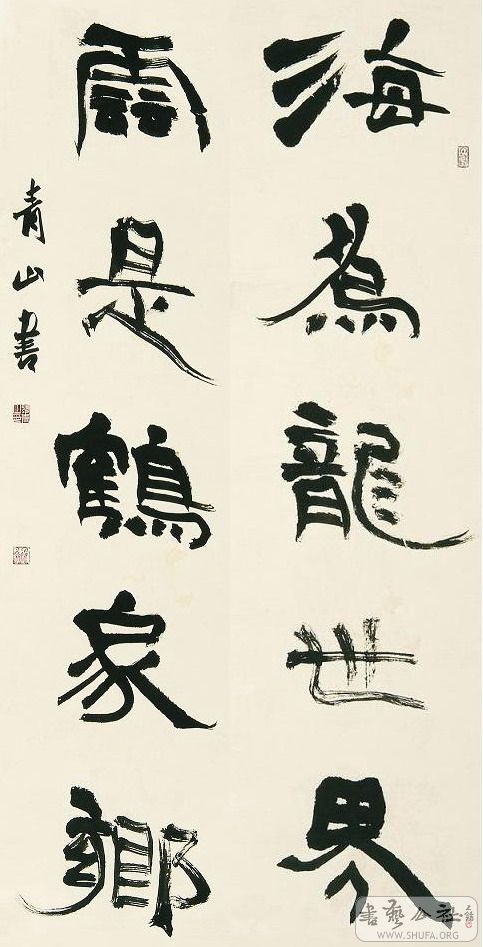 海為龍世界
雲是鶴家鄉
青山書
書藝公社
WWW.SHUFA.ORG